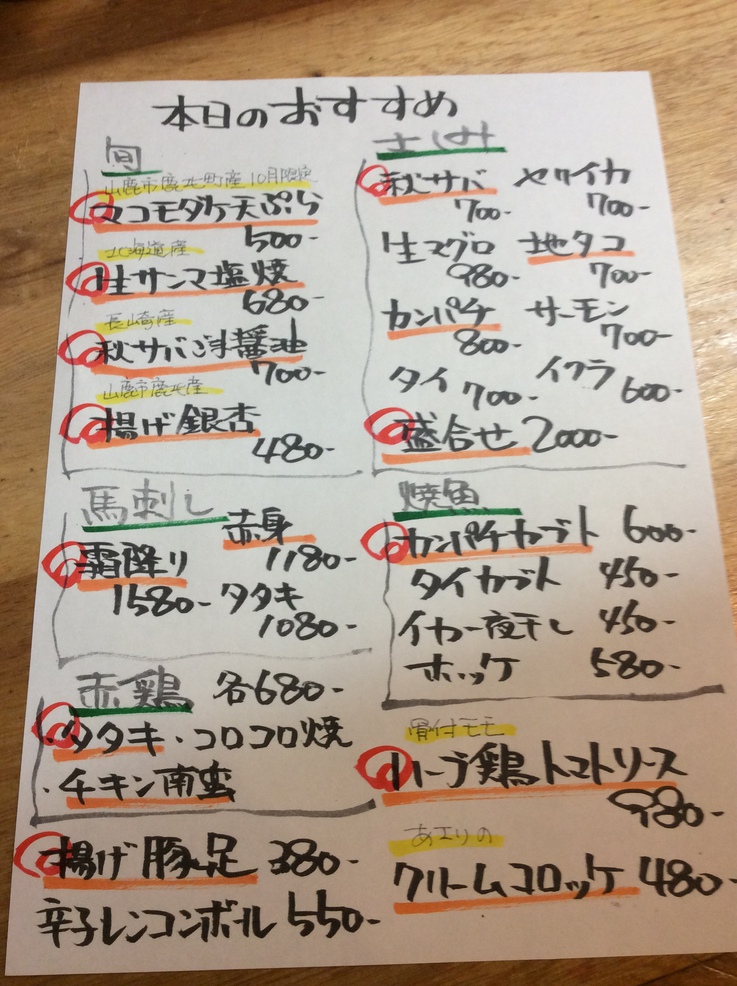 本日のおすすめ
旬
山鹿市鹿北町産 10月限定
マコモダケ天ぷら
500-
北海道産
生サンマ塩焼
680-
長崎産
秋サバごま醤油
700-
山鹿市鹿北産
揚げ銀杏
480-
さしみ
秋サバ ヤリイカ
700- 700-
生マグロ 地タコ
980- 700-
カンパチ サーモン
800- 700-
タイ 700- イクラ 600-
盛合せ 2000-
馬刺し
赤身
霜降り 1180-
1580- タタキ
1080-
焼魚
カンパチカブト 600-
タイカブト 450-
イカ一夜干し 450-
ホッケ 580-
赤鶏 各680-
・タタキ・コロコロ焼
・チキン南蛮
骨付モモ
ハーブ鶏トマトソース
980-
揚げ豚足 380-
辛子レンコンボール 550-
あまりの
クリームコロッケ 480-